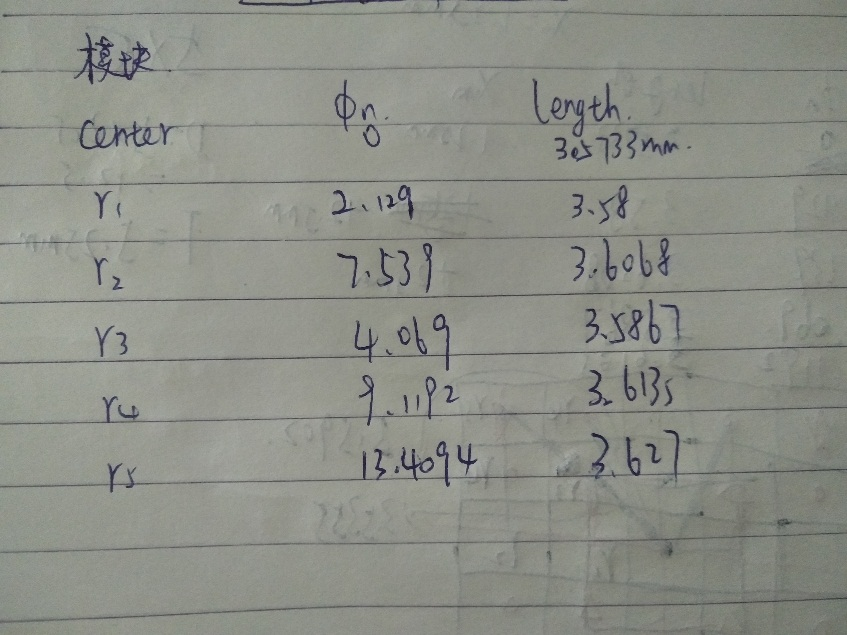 模块
Φn. length.
center 0 3.5733mm.
r1 2.129 3.58
r2 7.539 3.6068
r3 4.069 3.5867
r4 9.1192 3.6135
r5 13.4094 3.627